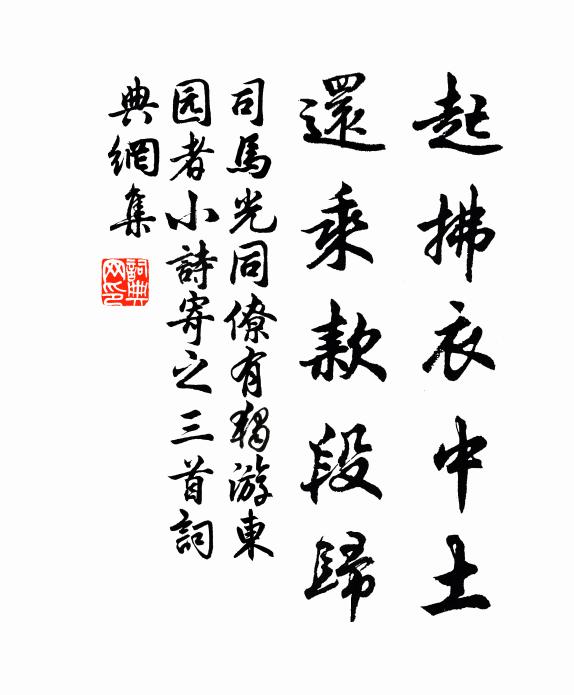 起拂衣中土
還乘款段歸
司馬光同僚有獨游東
园者小詩寄之三首詞
典網集
詞典
网印